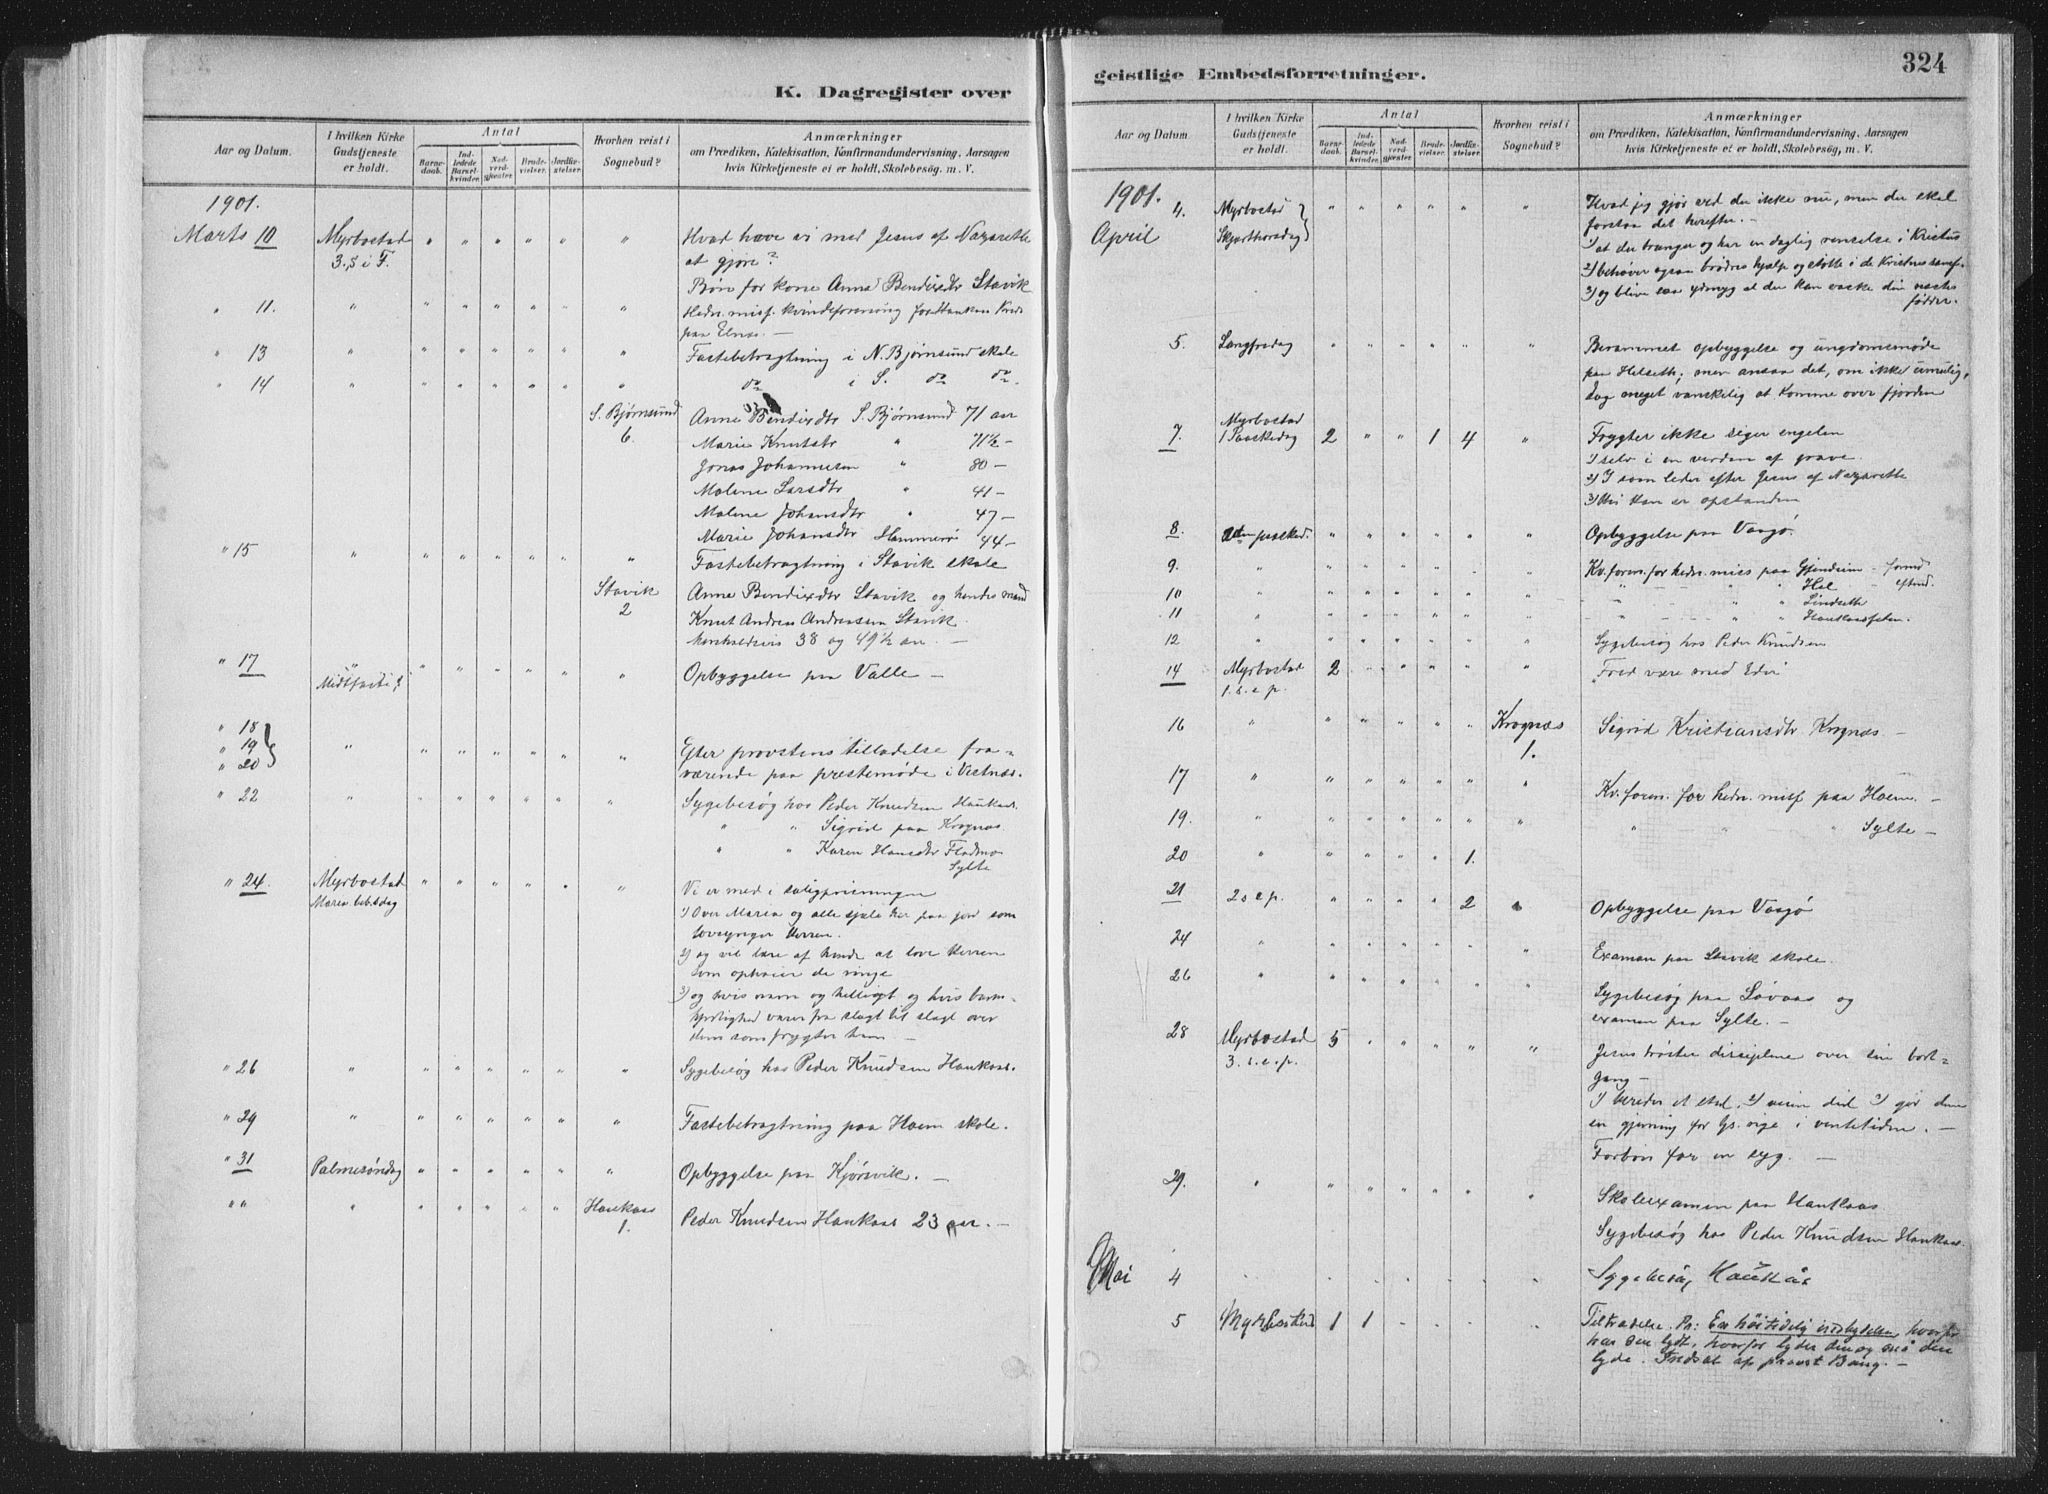 K. Dagregister over
Aar og Datum.
I hvilken Kirke Gudstjeneste er holdt.
Antal
Barnedaab.
Indledede Barselkvinder.
Nadverdgjæster.
Brudevielser.
Jordfæstelser.
Hvorhen reist i Sognebud?
Anmærkninger
om Prædiken, Katekisation, Konfirmandundervisning, Aarsagen
hvis Kirketjeneste ei er holdt, Skolebesøg. m. V.
1901.
Marts 10 Myrbostad " " " " " " Hvad have vi med Jesus af Nazareth
3. S i F. at gjøre?
Bøn for kone Anna Bendixdtr Stavik
" 11. " " " " " " " Hedn. misj. kvindeforening for Haukaas Kreds
paa Elnæs. —
" 13 " " " " " " " Fastebetragtning i N. Bjørnsund skole
" 14 " " " " " " " do i S. do do.
S. Bjørnsund Anne Bendixdtr S. Bjørnsund 71 aar
6. Marie Knutsdtr " 71½ —
Jonas Johannesen " 80 —
Malene Larsdtr " 41 —
Maline Johansdtr " 47 —
Marie Johansdtr Hammerø 44 —
" 15 " " " " " " " Fastebetragtning i Stavik skole
Stavik Anne Bendixdtr Stavik og hendes mand
2 Knut Andreas Andreassen Stavik.
henholdsvis 38 og 49½ aar. —
" 17 " " " " " " " Opbyggelse paa Valle —
Midtfaste
" 18
" 19 " " " " " " " Efter provstens tilladelse fra-
" 20 værende paa prestemøde i Vestnæs.
" 22 " " " " " " " Sygebesøg hos Peder Knudsen Haukaas.
" " Sigrid paa Krognæs
" " Karen Hansdtr Fladmo
Sylte
" 24. Myrbostad " " " " " " Vi er med i saligprisningen
Maria beb.dag 1) Over Maria og alle sjæle her paa jord som
lovsynger Herren.
2) og vil lære af hende at love Herren
som ophøier de ringe
3) og hvis navn og helligt og hvis barm-
hjertighed varer fra slægt til slægt over
dem som frygter ham —
" 26 " " " " " " " Sygebesøg hos Peder Knudsen Haukaas.
" 29 " " " " " " " Fastebetragtning paa Hoem skole.
" 31 Palmesøndag " " " " " " Opbyggelse paa Kjørsvik. —
" " " " " " " " Haukaas Peder Knudsen Haukaas 23 aar. —
1.
geistlige Embedsforretninger.
324
Aar og Datum
I hvilken Kirke Gudstjeneste er holdt.
Antal
Barnedaab.
Indledede Barselkvinder.
Nadverdgjæster.
Brudevielser.
Jordfæstelser.
Hvorhen reist i Sognebud?
Anmærkninger
om Prædiken, Katekisation, Konfirmandundervisning, Aarsagen
hvis Kirketjeneste ei er holdt, Skolebesøg, m. V.
1901. 4. Myrbostad " " " " " " Hvad jeg gjør ved du ikke nu, men du skal
April Skjærthorsdag forstaa det herefter. —
1) at du trænger og har en daglig renselse i Kristus
2) behøver ogsaa brødres hjælp og støtte i de Kristnes samf.
3) og blive saa ydmyg at du kan vaske din næstes
fødder.
5. Langfredag " " " " " " Berammet opbyggelse og ungdomsmøde
paa Helseth; men ansaa det, om ikke umulig,
dog meget vanskelig at komme over fjorden
7. Myrbostad 1 Paaskedag 2 " " 1 4 " Frygter ikke siger engelen
1) selv i en verden af grave.
2) I som leder efter Jesus af Nazareth
3) thi han er opstanden
8. 2den paasked. " " " " " " Opbyggelse paa Vaagø.
9. " " " " " " " Kv. foren. for hedn. miss paa Gjendeim — formd.
10 " " " " " " " " " Hol — eftmd.
11 " " " " " " " " " Lindseth
" " Haukaas
12 " " " " " " " Sygebesøg hos Peder Knudsen
14 Myrbostad 2 " " " " " "Fred være med Eder"
1. s. e. p.
16 " " " " " " Krognæs Sigrid Kristiansdtr Krognæs —
1.
17 " " " " " " " Kv. foren. for hedn. misj paa Hoem. —
19. " " " " " " " " " " Sylte —
20 " " " " " 1.
21 2 s e p. " " " " 2 " Opbyggelse paa Vaagø
24 " " " " " " " Examen paa Stavik skole.
26 " " " " " " " Sygebesøg paa Løvaas og
examen paa Sylte. —
28 Myrbostad 5 " " " " " Jesus trøster disciplene over sin bort-
3. s. e. p. gang —
1) bereder et sted, 2) veien did 3) gjør dem
en gjerning for Gs. rige i ventetiden. —
Forbøn for en syg. —
29. " " " " " " " Skoleexamen paa Haukaas
Sygebesøg hos Peder Knudsen Haukaas.
Mai 4 " " " " " " " Sygebesøg Haukås
5 Myrbostad 1 1 " " " " Tiltrædelse. Pr: En høitidelig indbydelse, hvorfor
har den lydt, hvorfor lyder den og må den
lyde. Indsat af provst Bang. —